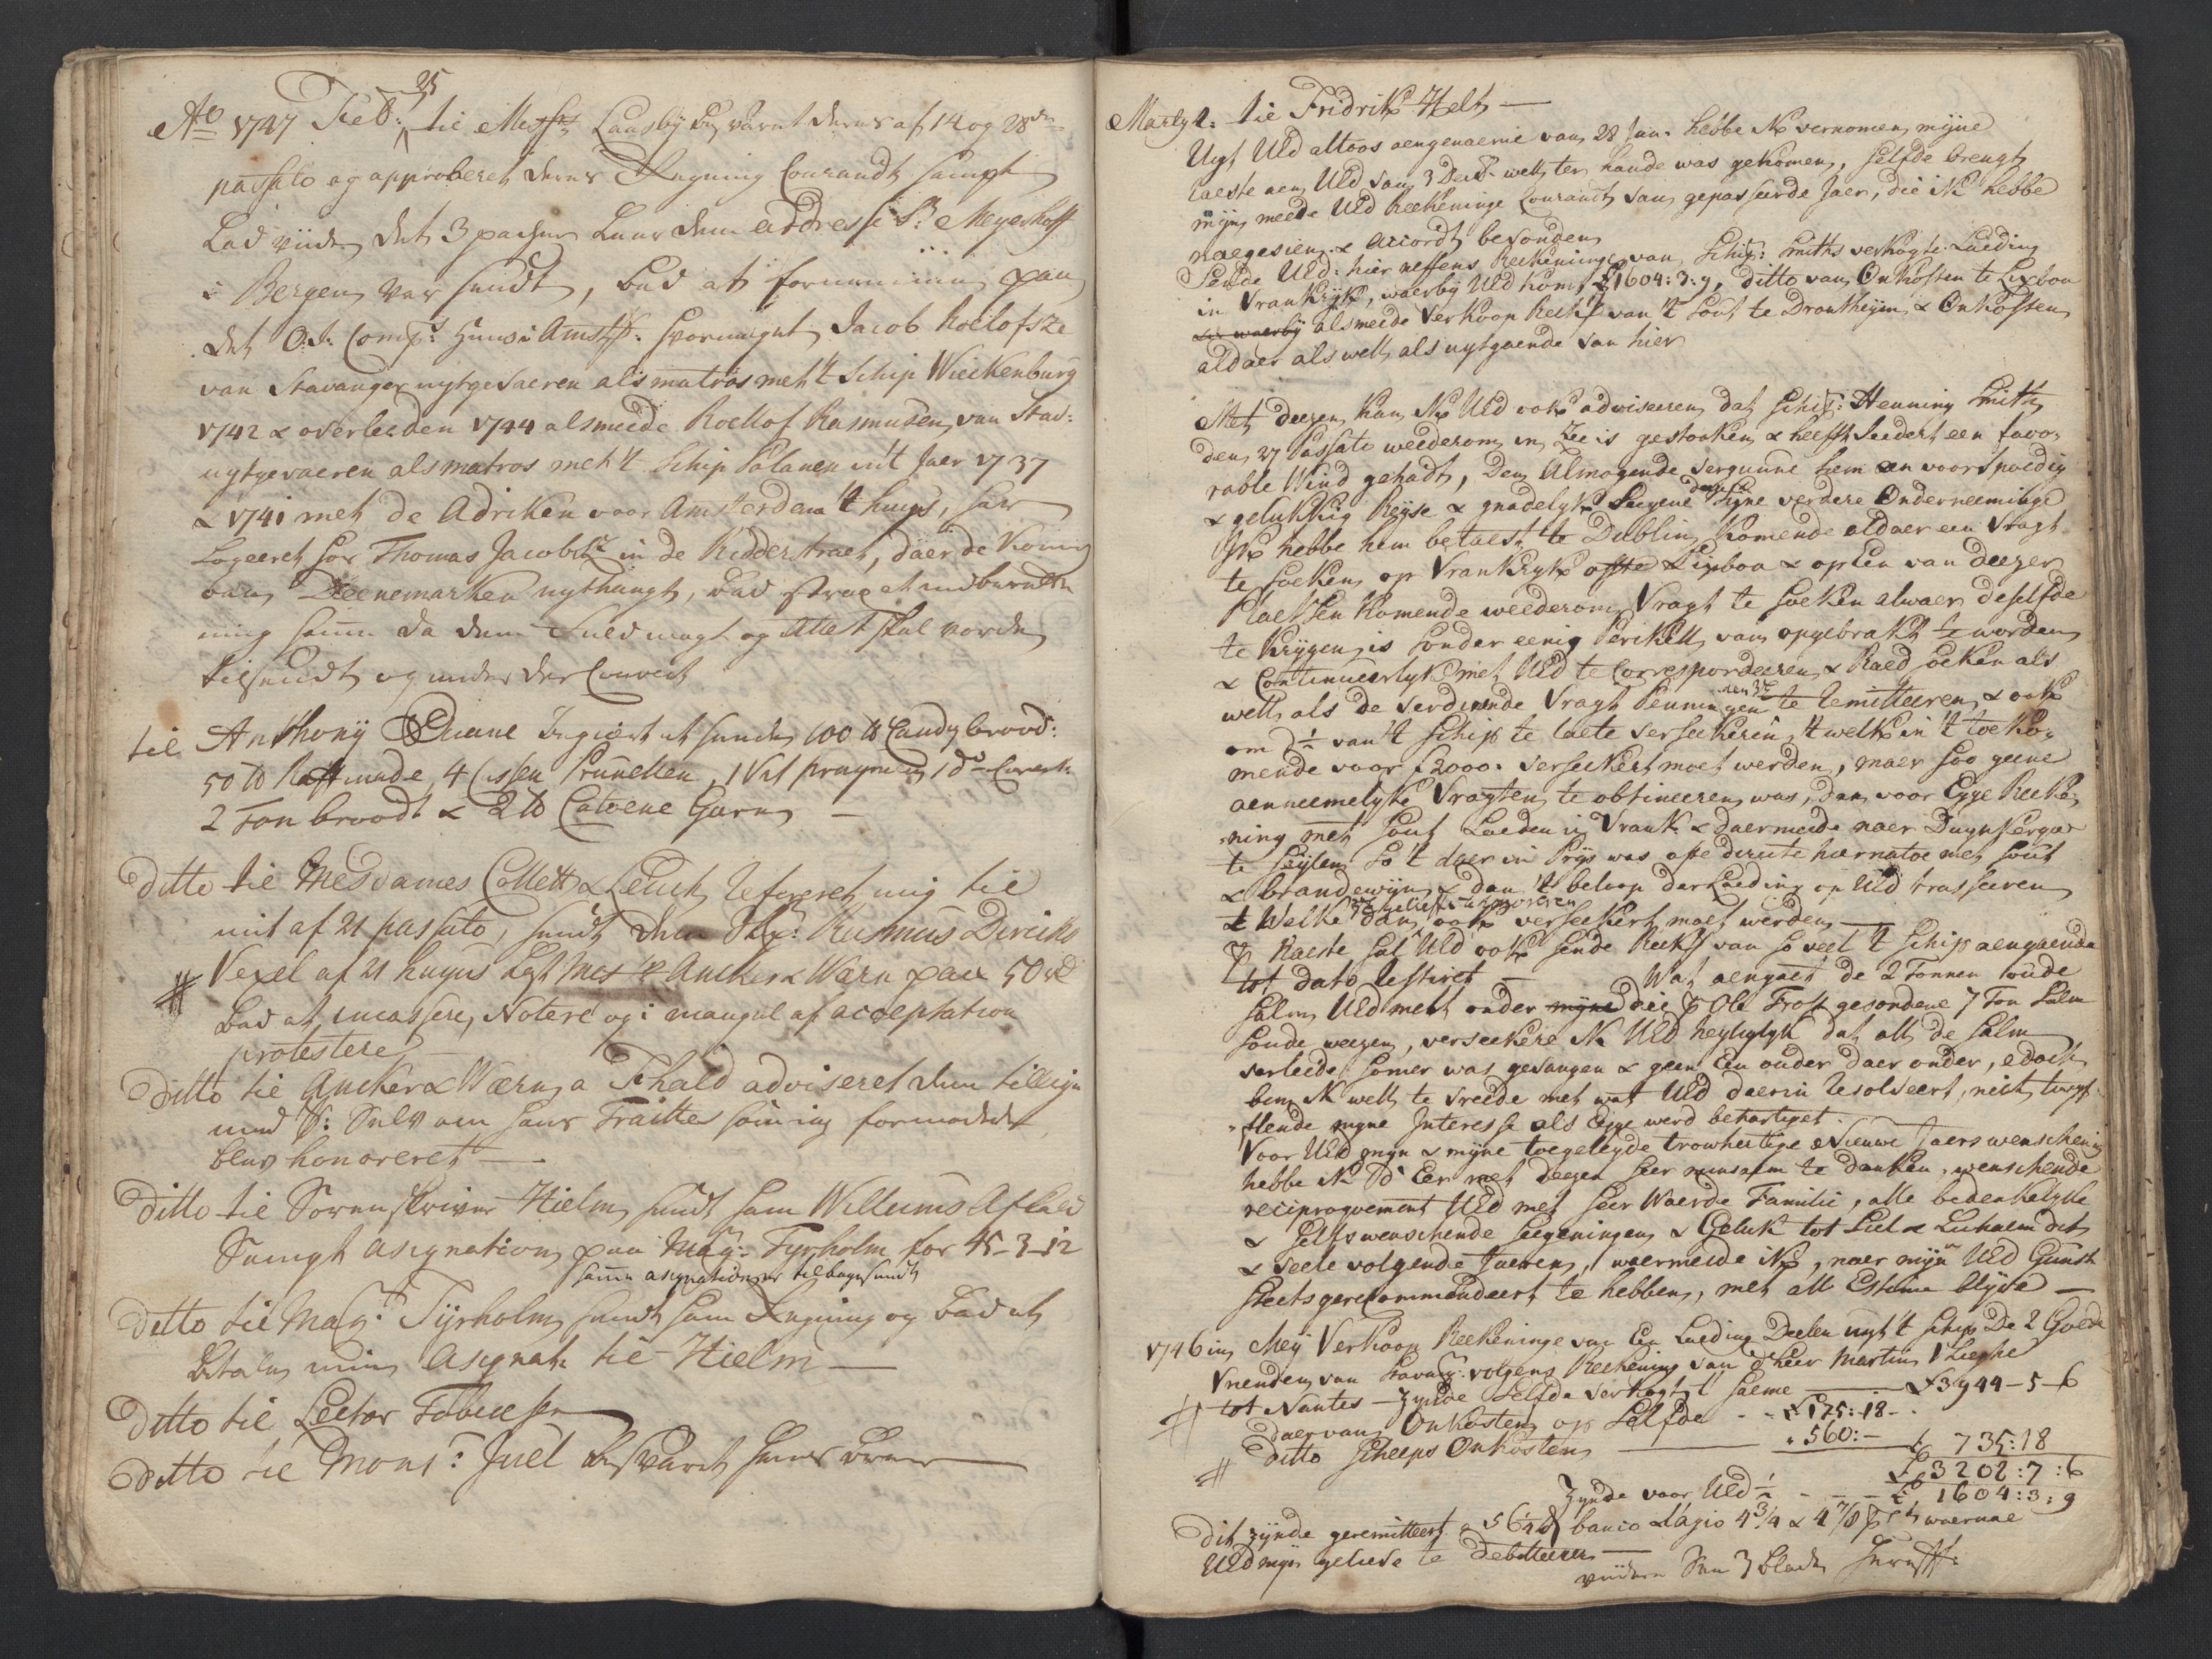 Ao 1747 Feb: 25 til Messrs Lausby besvaret deres af 14 og 28de
passato og approberet deres Regning Courandt sampt
bad vide det 3 pacher under dem addresse Sr: Meyerhoff
i Bergen var sendt, bad at fornemme paa
det O. I. Comp:s Huus i Amstr: hvormeget Jacob Roelofsze
van Stavanger uytgevaeren als matros met 't Schip Wieckenburg
1742 & overleeden 1744 alsmeede Roellof Rasmusen van Stav:
uytgevaeren als matros met 't Schip Polanen int Jaer 1737
& 1741 met de Adriken voor Amsterdam 't huys, har
Logeeret hos Thomas Jacobsz in de Ridderstraet, daer de Koning
van Deenemarken uythangt, bad
da dem magt og Attest skal vorde
tilsendt og under der Couvert
til Anthony Duane begiert at sende 100 lb Candybrood:
50 lb Raffinade, 4 Cassen Prunellen, 1 Vat 1 do
2 Ton broodt & 2 lb Catoene Garn —
Ditto til Mesdames Collett & Leuch refereret mig til
mit af 21 passato, sendt dem Rasmus Diricks
Vexel af 21 hujus Lyst Ancker & Wærn paa 50 rd
bad at incassere, Notere og i mangel af acceptation
protestere —
Ditto til Ancker & Wærn a Fr.hald adviseret dem tillige
med Sr: om hans Traitte som jeg formodede
blev honoreret —
Ditto til Sorenskriver Hielm sendt ham Willums Afkald
Sampt Asignation paa Mag: Tyrholm for 45-3-12
samme asignation er tilbagesendt
Ditto til Mag: Tyrholm sendt ham Regning og bad at
betale min Asignat: til Hielm —
Ditto til Lector Tobiesen
Ditto til Mons:r Juel besvaret hans brev —
Marty 2: til Fridrik Helt —
Uyt UEd altoos aengenaeme van 28 Jan: hebbe Ik vernomen mijne
laeste aen UEd van 3 Decbr: well ter hande was gekomen, selfde brengt
mijn meede UEd Reekeninge Courandt van gepasseerde Jaer, die ik hebbe
naegesien & accordt bevonden
Sende UEd: hier neffens Reekeninge van Schip: Smiths verkogte Laeding
in Vrankryk, waerby UEd komt £1604:3:9, ditto van Onkosten te Lixboa
alsmeede Verkoop Reek: van 't Sout te Drontheijm & Onkosten
aldaer als well als uytgaende van hier
Met deezen kan Ik UEd ook adviseeren dat Schip: Henning Smith
den 27 Passato weederom in Zee is gestooken & heefft seedert een favo:
rable Wind gehadt, Den Almogende vergunne hem een voorspoedig
& gelukkig Reyse & gnadelyk Seegene Zijne verdere Onderneeminge
Ik hebbe hem belaest te Dublin komende aldaer een Vragt
te soeken op Vrankryk ofte Lixboa & op Een van deezer
Plaetsen komende weederom Vragt te soeken alwaer deselfde
te krijgen is sonder eenig Perikell van opgebrakt te worden
& Continueerlyk met UEd te Correspondeeren & Raed soeken als
well als de verdinende Vragt Penningen te remitteeren & ook
om ½ van 't Schip te laete verseekeren, 't welk in 't toeko:
mende voor f2000. verseekert moet werden, maer soo geene
aenneemelyke Vragten te obtineeren was, dan voor Eyge Reeke:
ning met Sout Laeden in Vrank: & daermeede naer Duynkerque
te seylen so 't daer in Prijs was ofte directe hiernatoe met Sout
& brandewijn & dan 't beloop der Laeding op UEd trasseeren
't Welke dan ook verseekert moet werden —
Pr Naeste sal UEd ook sende Reek: van so veel 't Schip aengaende
tot dato resteret — Wat aengaet de 2 Tonnen oude
Salm UEd ment onder die pr Ole Frost gesondene 7 Ton Salm
soude weezen, verseekere Ik UEd heyliglyk dat all de Salm
verleide Somer was gevangen & geen Een ouder daer onder, edoch
ben Ik well te vreede met wat UEd daerin resolveert, neit twyf:
flende myne Interesse als Eyge werd behartiget
Voor UEd myn & mijne toegelegde trowhertige Nieuwe Jaers wenschening
hebbe Ik d' Eer met deezen seer minsaem te danken, wenschende
reciproquement UEd met seer Waerde Familie, alle bedenkelyke
& selfs wenschende seegeningen & Geluk tot Siel & Lichaem dit
& veele volgende Jaeren, waermeede Ik, naer mijn UEd Gunst
steets gerecommandeert te hebben, met all Estime blyve —
1746 in Mey Verkoop Reekeninge van En Laeding Deelen uyt 't Schip De 2 Goede
Vrienden van Stavang: volgens Reekening van d'Heer Martin Vlieghe
tot Nantes — Zynde selfde verkogt t'saeme — £3944-5-6
daervan Onkosten op selfde - - £175:18-
Ditto Scheeps Onkosten — 560:— £ 735:18
£3202:7:6
Zynde voor UEd ½ - - - £ 1604:3:9
Dit zynde geremitteert a 56 banco & agio 4¾ & 4⅞ pr Ct waervoe
UEd myn geliefe te debitteeren —
vidern See 3 Blade